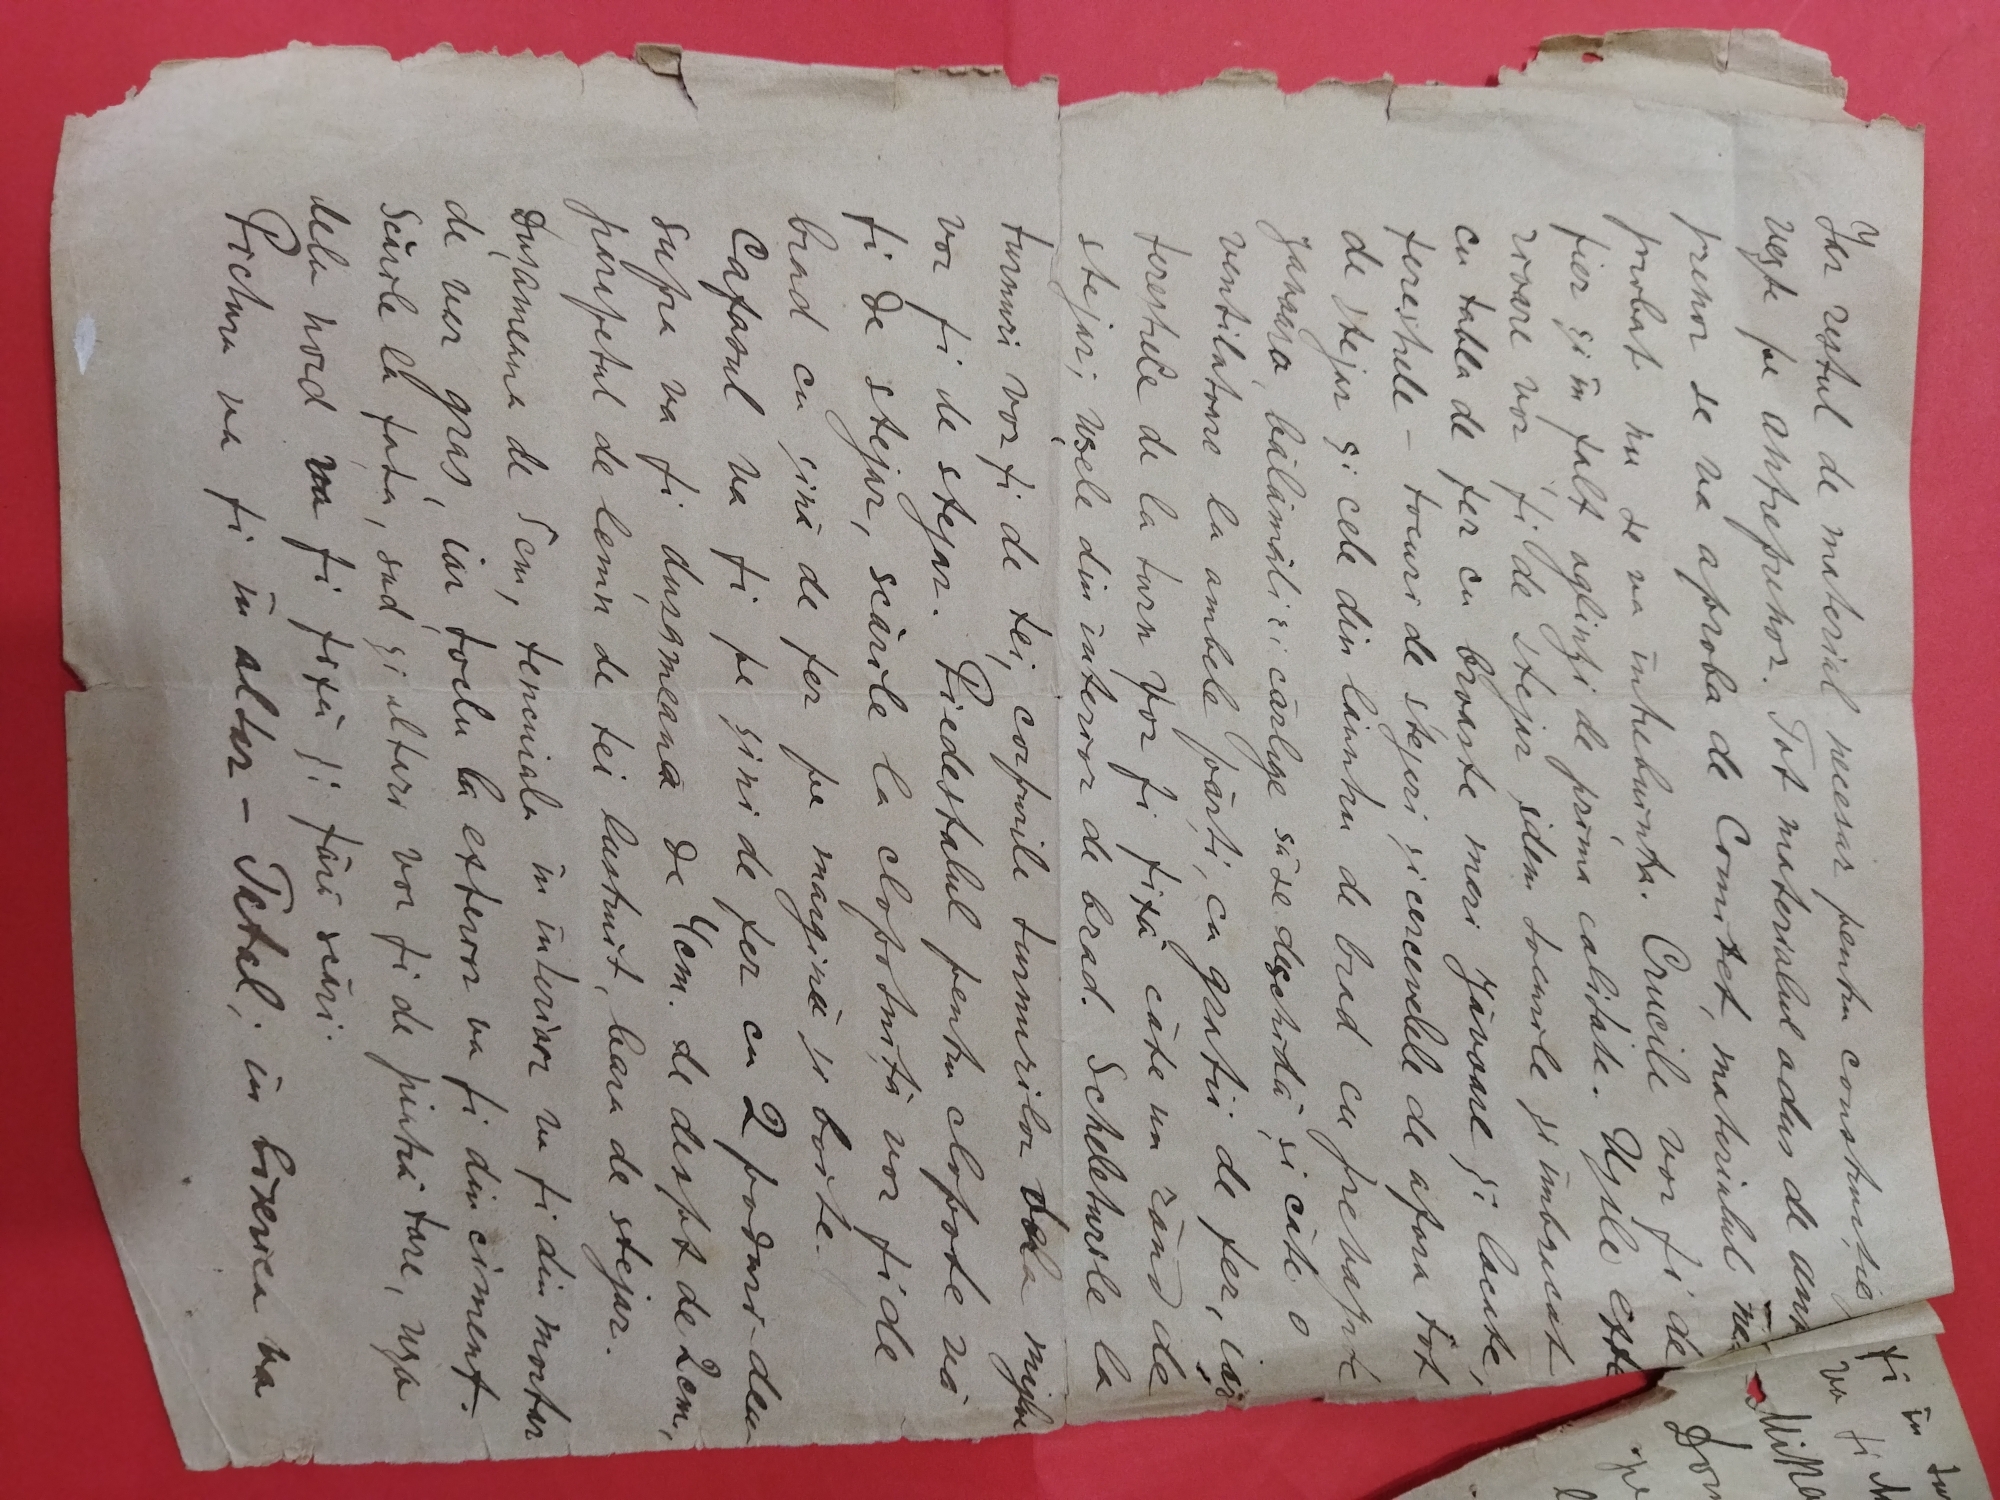 Iar restul de material necesar pentru construcție
vește pe antreprenor. Tot materialul adus de ant
prenor se va aproba de Comitet, materialul ne
probat nu se va întrebuința. Crucile vor fi de
fier și în falț oglinzi de prima calitate. Ușile exte
rioare vor fi de stejar idem tocurile și îmbrăcat
cu tabla de fer cu broaste mari zăvoare și lacate,
ferestrele – tocuri de stejari și cercevelele de afara tot
de stejar și cele din lăuntru de brad cu
bălămăli și cărlige să se deschidă și câte o
ventilatoare la ambele părți, cu gratii de fer, iar
ferestrele de la turn vor fi fixă câte un rând de
stejari, ușele din interior de brad. Scheleturile la
turnuri vor fi de tei, corpurile turnurilor dela mijloc
vor fi de stejar. Piedestalul pentru clopote va
fi de stejar, scările la clopotniță vor fi de
brad cu șine de fer pe margine și boite.
Cafasul va fi pe șini de fer cu 2 poduri – deu
supra va fi dușameană de 4cm. de desupt de 2cm,
parapetul de lemn de tei lustruit, bara de stejar.
Dușameaua de 5cm, tencuiala în interior va fi din mortar
de var gras, iar soclu la exterior va fi din ciment.
Scările la fată, sud și altari vor fi de piatră tare, ușa
dela nord va fi fixă și fără scări.
Pictura va fi în altar – Tetal, în biserica va
fi în
va fi